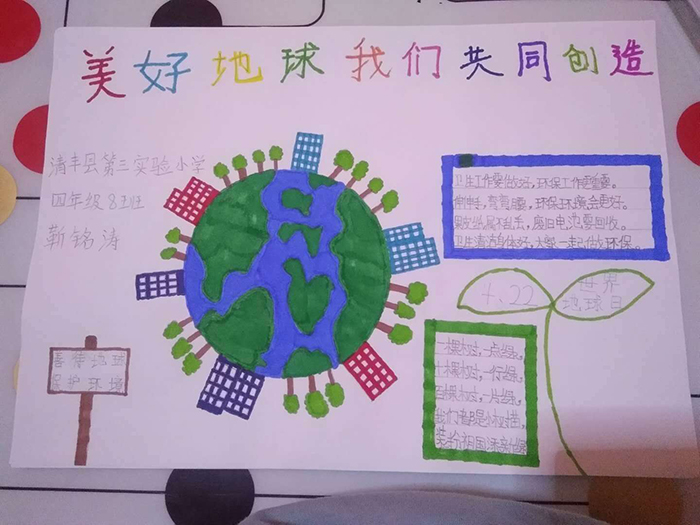 美好地球我们共同创造
清丰县第三实验小学
四年级8班
靳铭涛
卫生工作要做好,环保工作更重要。
弯弯腰,环保环境会更好。
果皮纸屑不乱丢,废旧电池要回收。
卫生清洁身体好,大家一起做环保。
4.22
世界
地球日
善待地球
保护环境
一棵树,一点绿,
十棵树,一行绿,
百棵树,一片绿,
我们都是小树苗,
装扮祖国